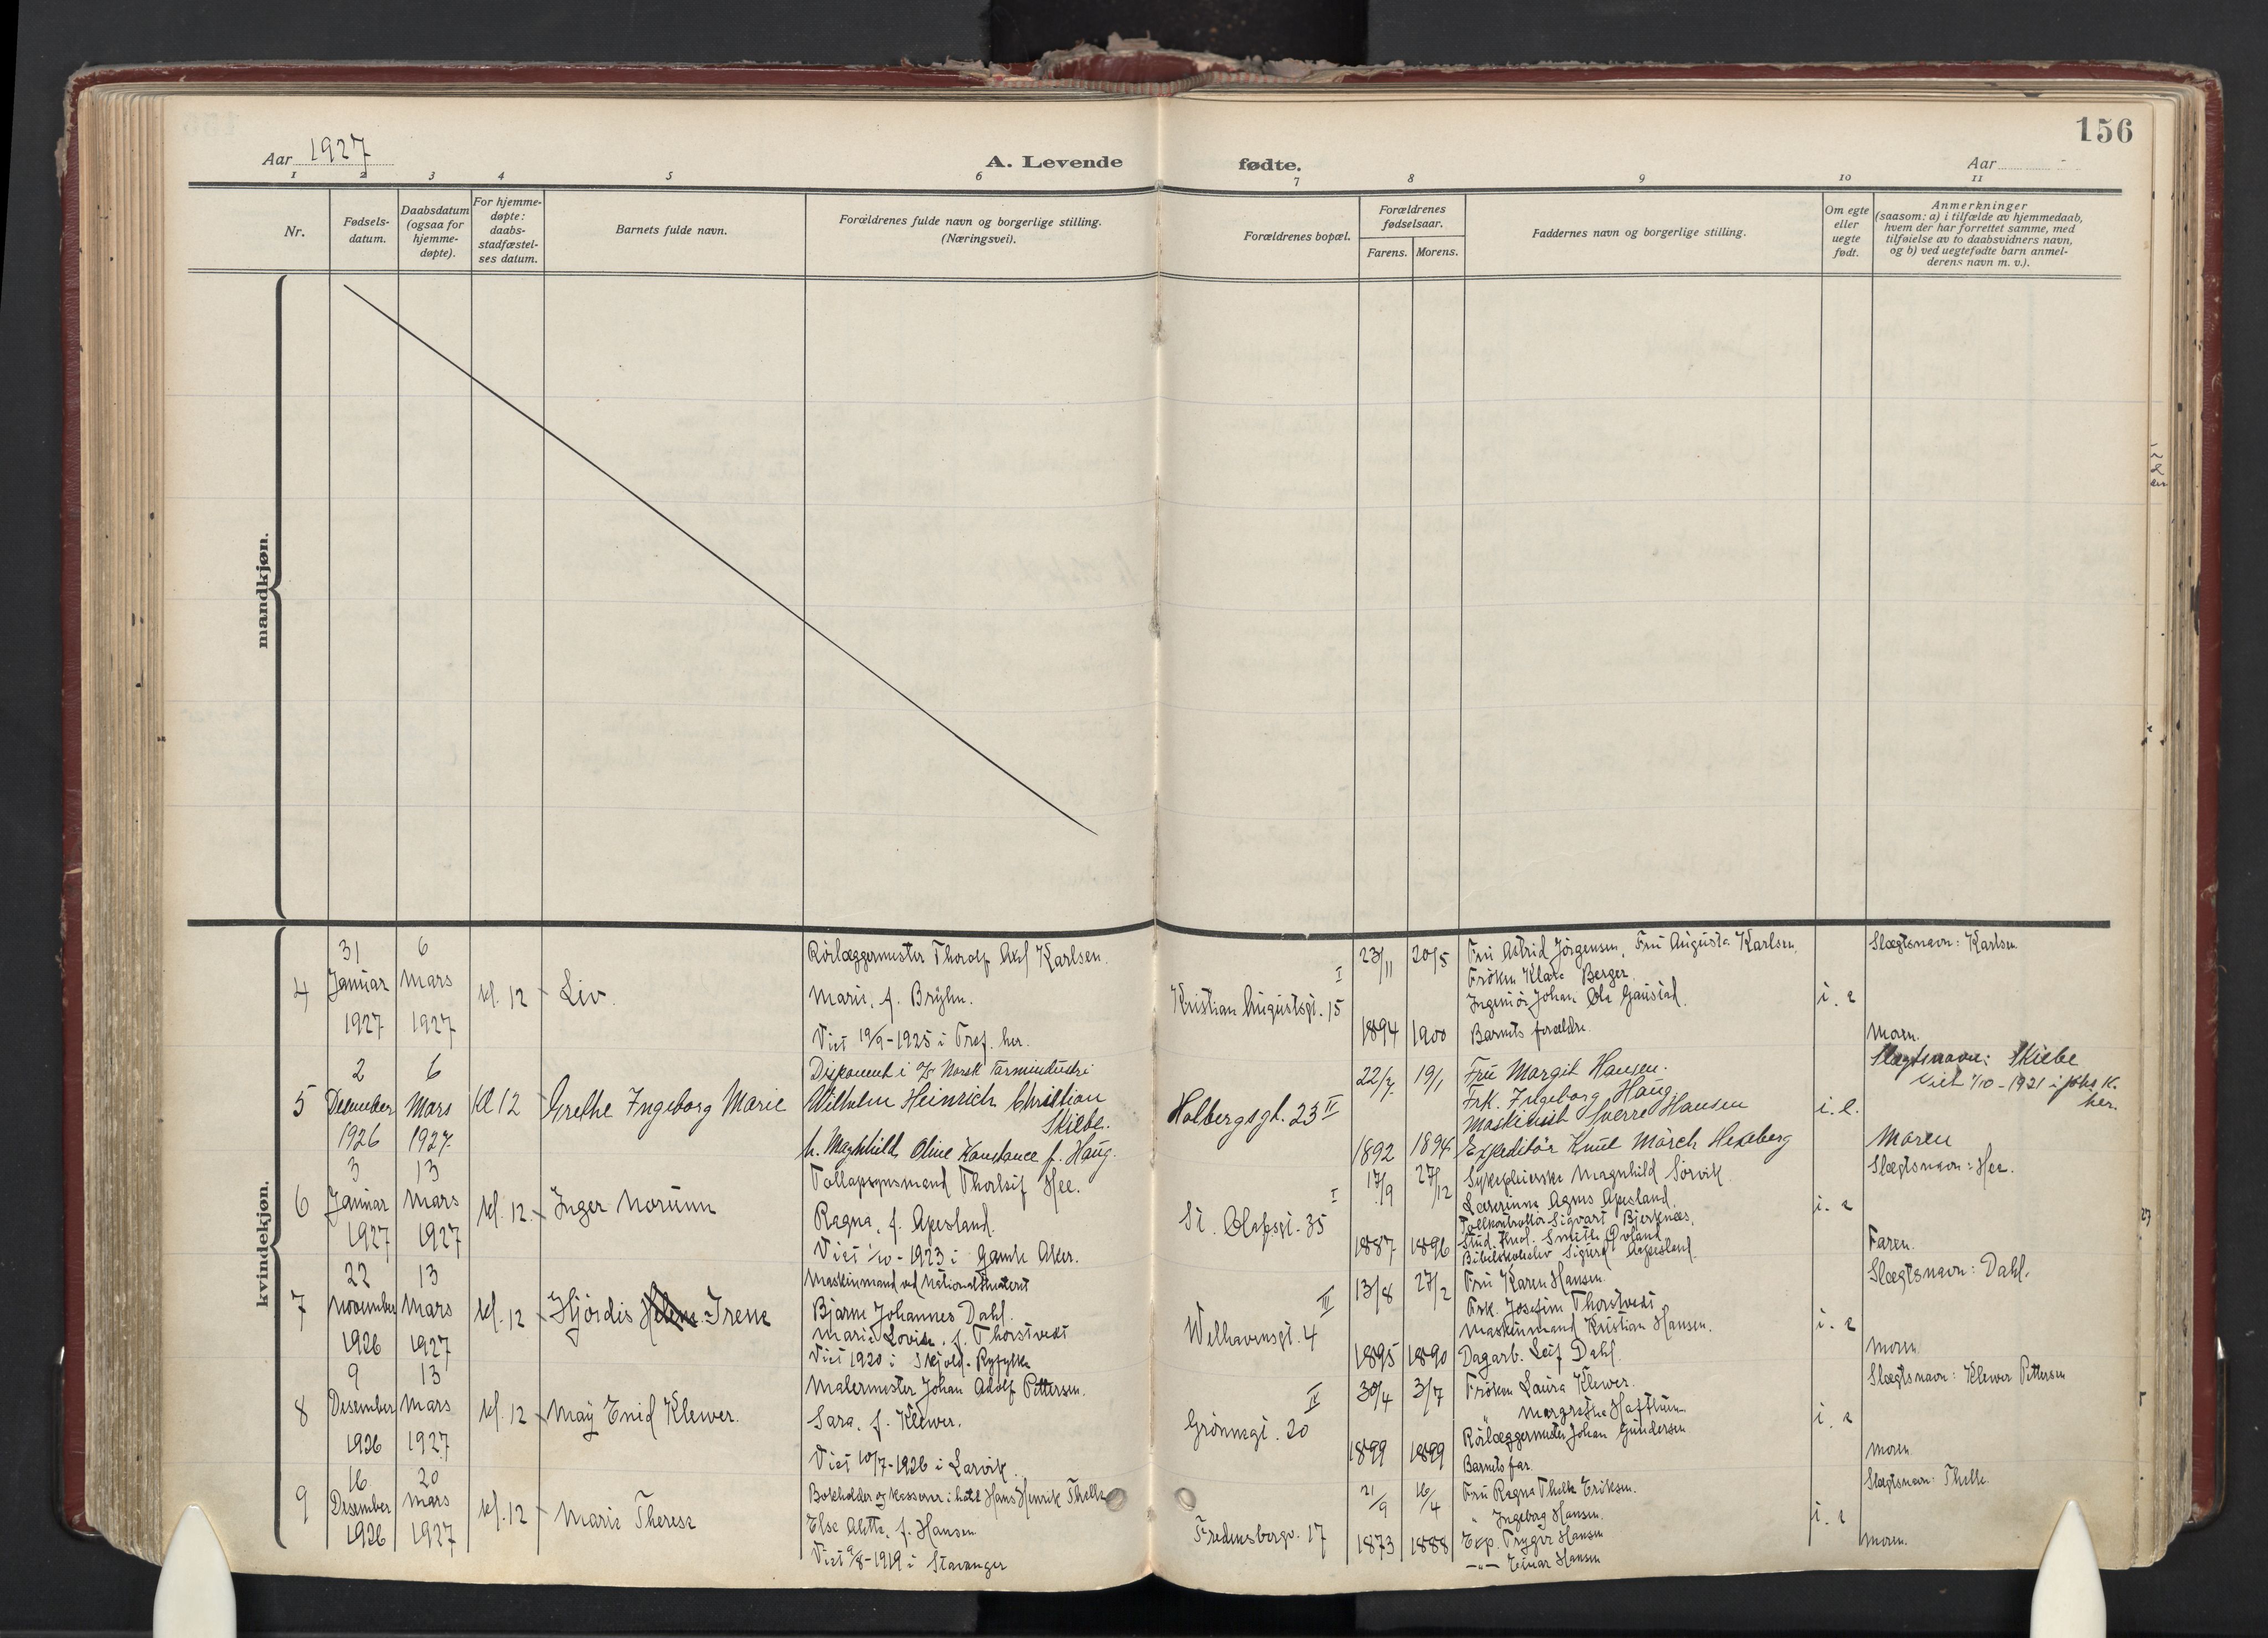 156
Aar 1927
A. Levende fødte.
Aar
1 2 3 4 5 6 7 8 9 10 11
Nr.
Fødsels-
datum.
Daabsdatum
(ogsaa for
hjemme-
døpte).
For hjemme-
døpte:
daabs-
stadfæstel-
ses datum.
Barnets fulde navn.
Forældrenes fulde navn og borgerlige stilling.
(Næringsvei).
Forældrenes bopæl.
Forældrenes
fødselsaar.
Farens. Morens.
Faddernes navn og borgerlige stilling.
Om egte
eller
uegte
født.
Anmerkninger
(saasom: a) i tilfælde av hjemmedaab,
hvem der har forrettet samme, med
tilføielse av to daabsvidners navn,
og b) ved uegtefødte barn anmel-
derens navn m. v.).
mandkjøn.
kvindekjøn.
4
31
Januar
1927
6
Mars
1927
kl. 12
Liv.
Rörlæggermester Thorolf Karlsen.
Marie, f. Bryhn.
Viet 19/9-1925 i Tref. her.
I
Kristian Augustsgt. 15
23/11
1894
20/5
1900
Fru Astrid Jörgensen, Fru Augusta Karlsen,
Fröken Klara Berger.
Ingeniör Johan Ole Gaustad.
Barnets forældre.
i. e
Slægtsnavn: Karlsen
Moren.
5
2
Desember
1926
6
Mars
1927
Kl 12
Grethe Ingeborg Marie
Disponent i A/S Norsk Tarmindustri
Wilhelm Heinrich Christian
Skiebe.
h. Maghhild Oline Konstance f. Haug.
Holbergsgt. 23 II
22/7.
1892
19/1
1894
Fru Margit Hansen.
Frk. Ingeborg Haug,
Maskinist Sverre Hansen
Expeditör Knut Mörch Hexeberg
i. e.
Slægtsnavn: Skiebe
Viet 1/10-1921 i Johs K.
her.
Moren
6
3
Januar
1927
13
Mars
1927
kl. 12.
Inger Norunn
Tollopsynsmand Thorleif Hee.
Ragna, f. Apesland.
Viet 1/10-1923 i Gamle Aker.
I
St. Olafsgt. 35
17/9
1887
27/12
1896
Sykepleierske Magnhild Sörvik
Lærerinne Agnes Apesland.
Tollkontrollör Sigvart Bjerknæs,
Stud. theol. Smith Ovland
Bibelskoleelev Sigurd Apesland.
i. e
Slægtsnavn: Hee.
Faren.
7
22
November
1926
13
Mars
1927
kl. 12
Hjördis Irene
Maskinmand ved Nationaltheatret
Bjarne Johannes Dahl.
Marie Lovise, f. Thorstvedt
Viet 1920 i Skjold - Ryfylke
III
Welhavensgt. 4
13/8
1895
27/2
1890
Fru Karen Hansen.
Frk. Josefine Thorstvedt
Maskinmand Kristian Hansen.
Dagarb. Leif Dahl.
i. e
Slægtsnavn: Dahl.
Moren
8
9
Desember
1926
13
Mars
1927
kl. 12
May Enid Klewer.
Malermester Johan Adolf Pettersen.
Sara, f. Klewer.
Viet 10/7-1926 i Larvik.
II
Grönnegt. 20
30/4
1899
3/7
1899
Fröken Laura Klewer.
" Margrethe
Rörlæggermester Johan Gundersen
Barnets far.
i. e
Slægtsnavn: Klewer Pettersen
Moren.
9
16
Desember
1926
20
Mars
1927
kl. 12
Marie Therese
Bokholder og kasserer i hotell Hans Henrik Thelle
Else Alette, f. Hansen
Viet 9/8-1919 i Stavanger
Fredensborgv. 17
21/9
1873
16/4
1888
Fru Ragna Thelle Eriksen.
" Ingeborg Hansen.
Exp. Trygve Hansen
—"— Einar Hansen
i. e
Slægtsnavn: Thelle.
Moren.